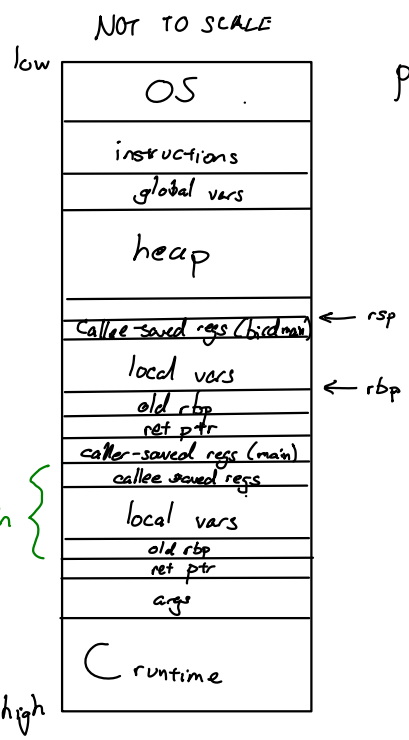 NOT TO SCALE
low
OS
instructions
global vars
heap
rsp
callee-saved regs (birdman)
local vars
rbp
old rbp
ret ptr
caller-saved regs (main)
callee saved regs
local vars
old rbp
ret ptr
args
C runtime
high